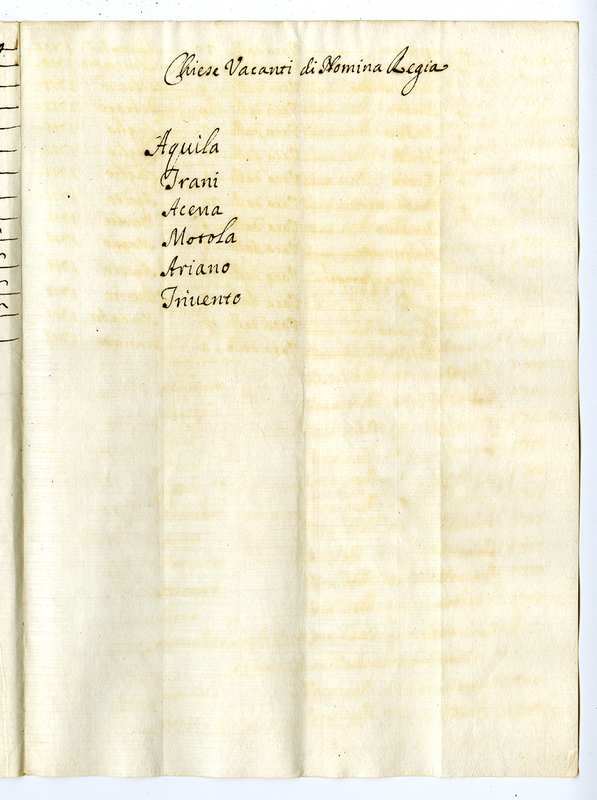 Chiese Vacanti di Nomina Regia
Aquila
Trani
Acerra
Motola
Ariano
Trivento